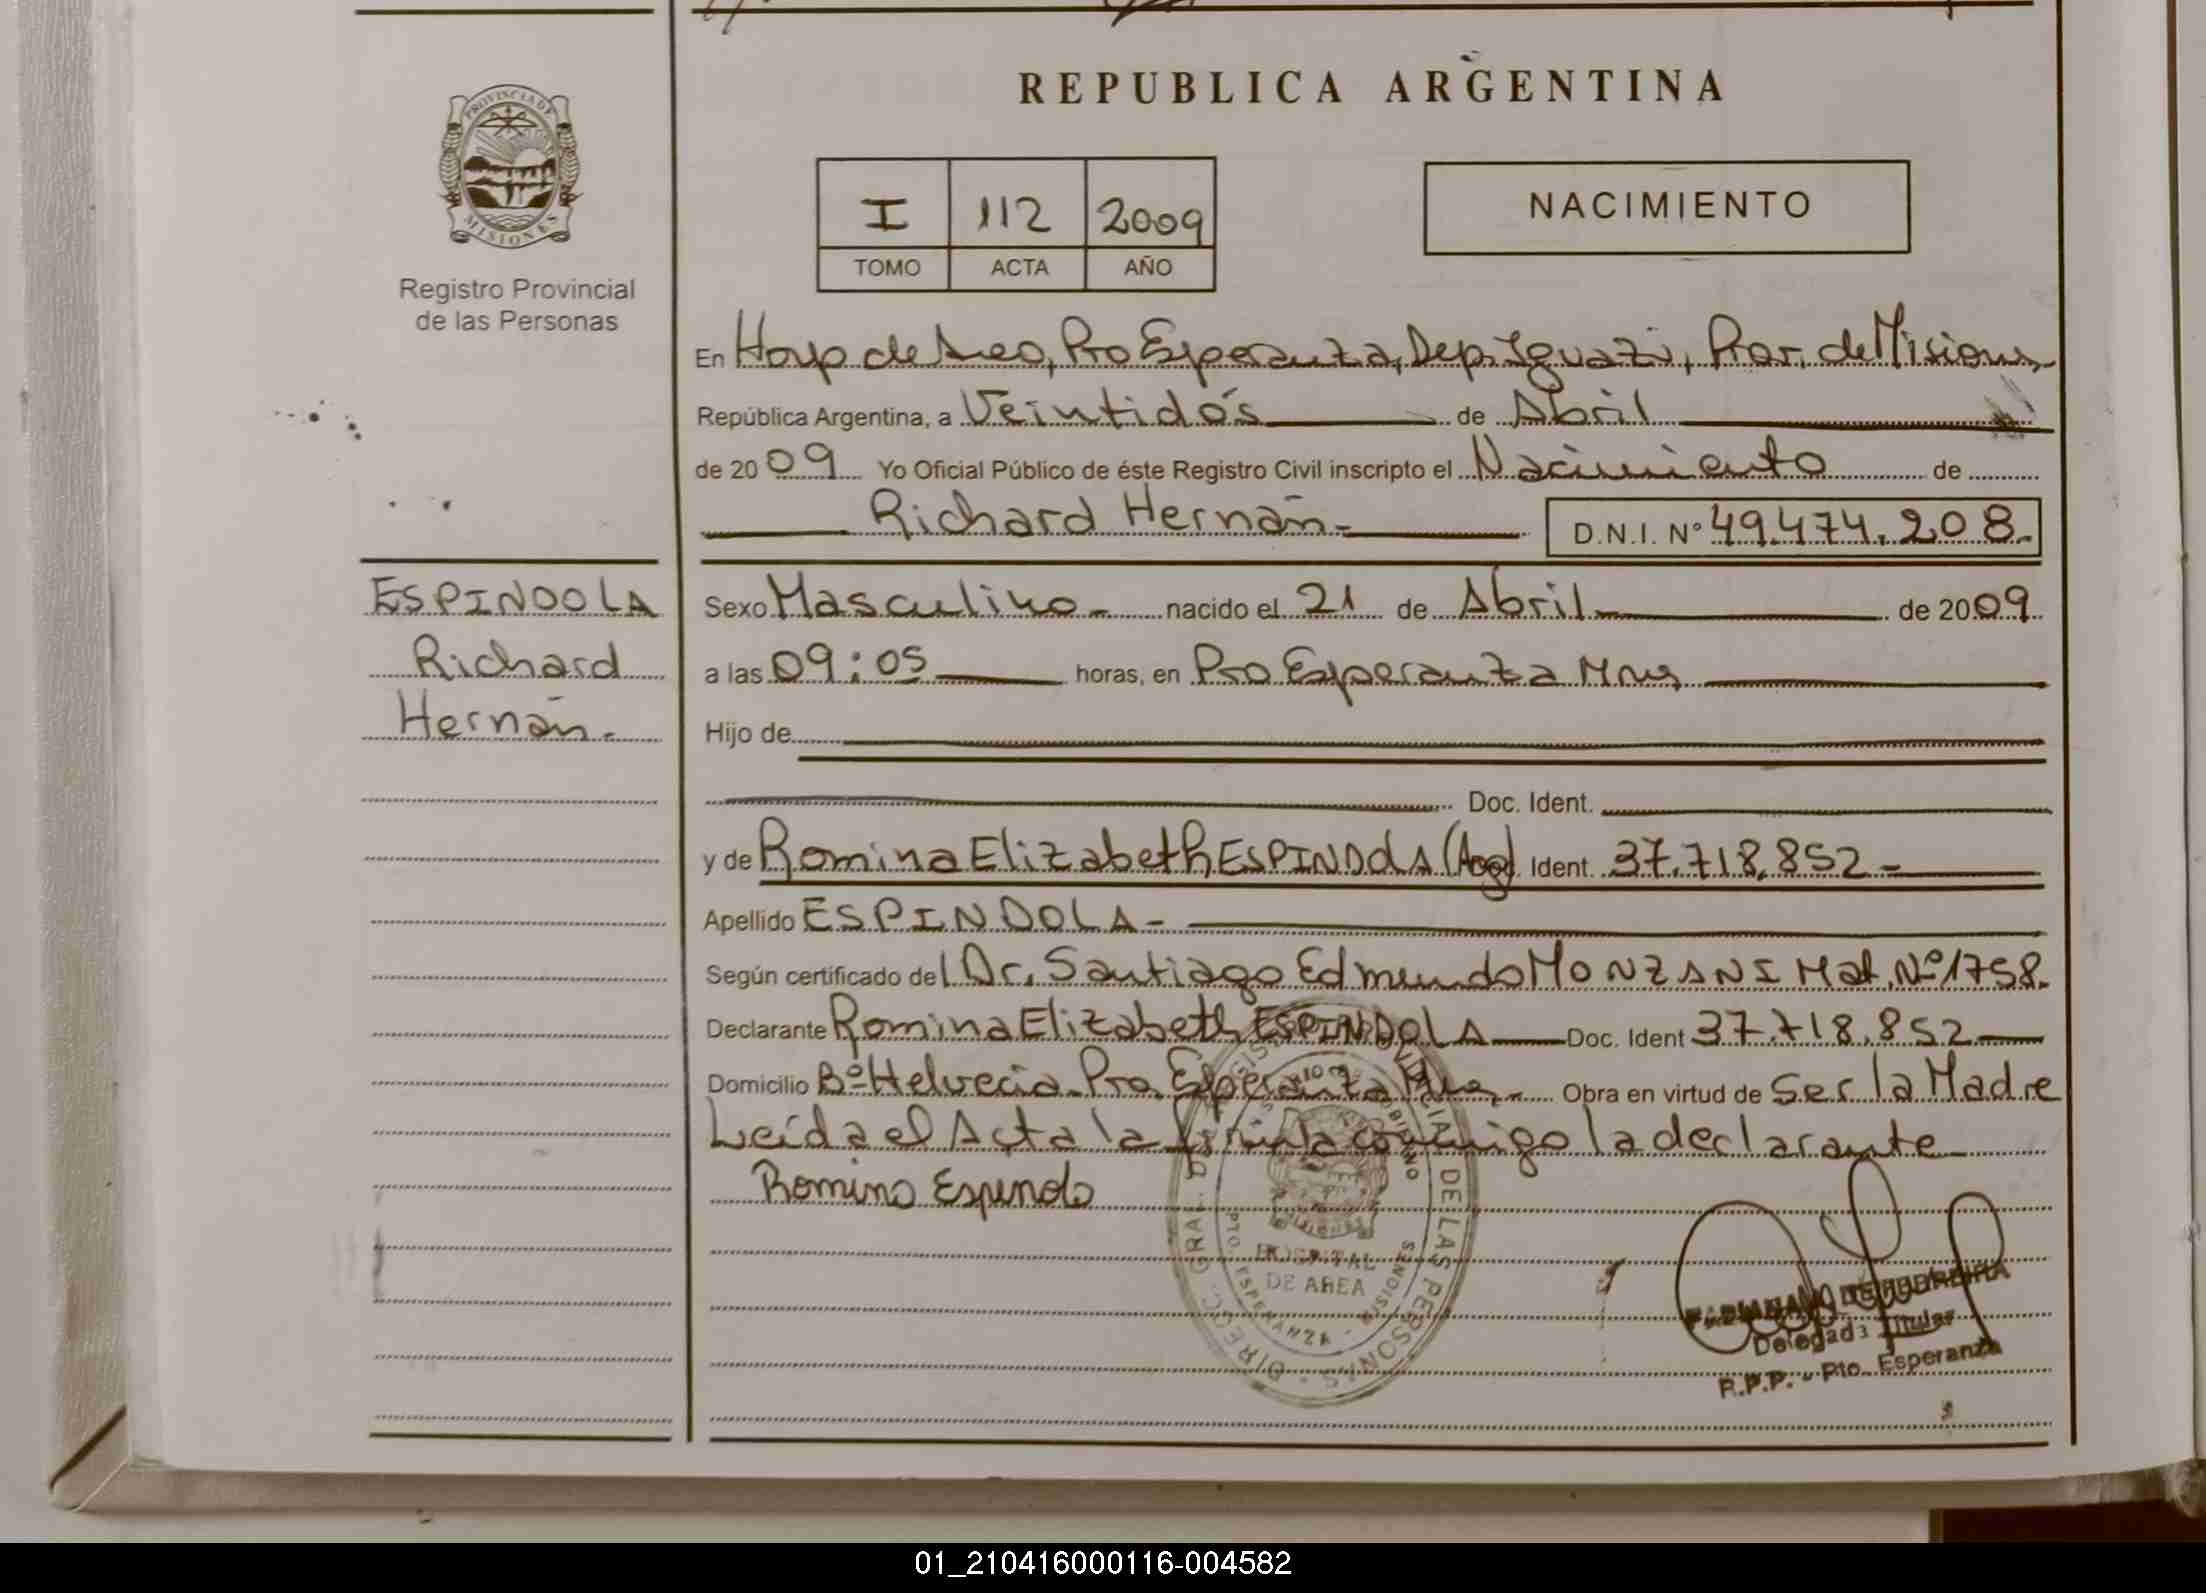 REPUBLICA ARGENTINA
PROVINCIA DE
MISIONES
Registro Provincial
de las Personas
I 112 2009
TOMO ACTA AÑO
NACIMIENTO
En Hosp de Area, Pto Esperanza, Dep. Iguazú, Prov. de Misiones
República Argentina, a Veintidós de Abril
de 2009 Yo Oficial Público de éste Registro Civil inscripto el Nacimiento de
Richard Hernán.-
D.N.I. Nº 49.474.208.
ESPINDOLA
Richard
Hernán.-
Sexo Masculino.- nacido el 21 de Abril de 2009
a las 09:05 horas, en Pto Esperanza Mnes
Hijo de
Doc. Ident.
y de Romina Elizabeth ESPINDOLA (Arg) Ident. 37.718.852.-
Apellido ESPINDOLA-
Según certificado del Dr. Santiago Edmundo MONZANI Mat. Nº 1758.
Declarante Romina Elizabeth ESPINDOLA Doc. Ident 37.718.852
Domicilio Bº Helvecia. Pto. Esperanza Mnes.- Obra en virtud de Ser la Madre
Leída el Acta la firma conmigo la declarante
Romina Espindola
HOSPITAL
DE AREA
PTO. ESPERANZA - MISIONES
DIRECC. GRAL. DE LAS PERSONAS
Delegada Titular
R.P.P. - Pto. Esperanza
01_210416000116-004582